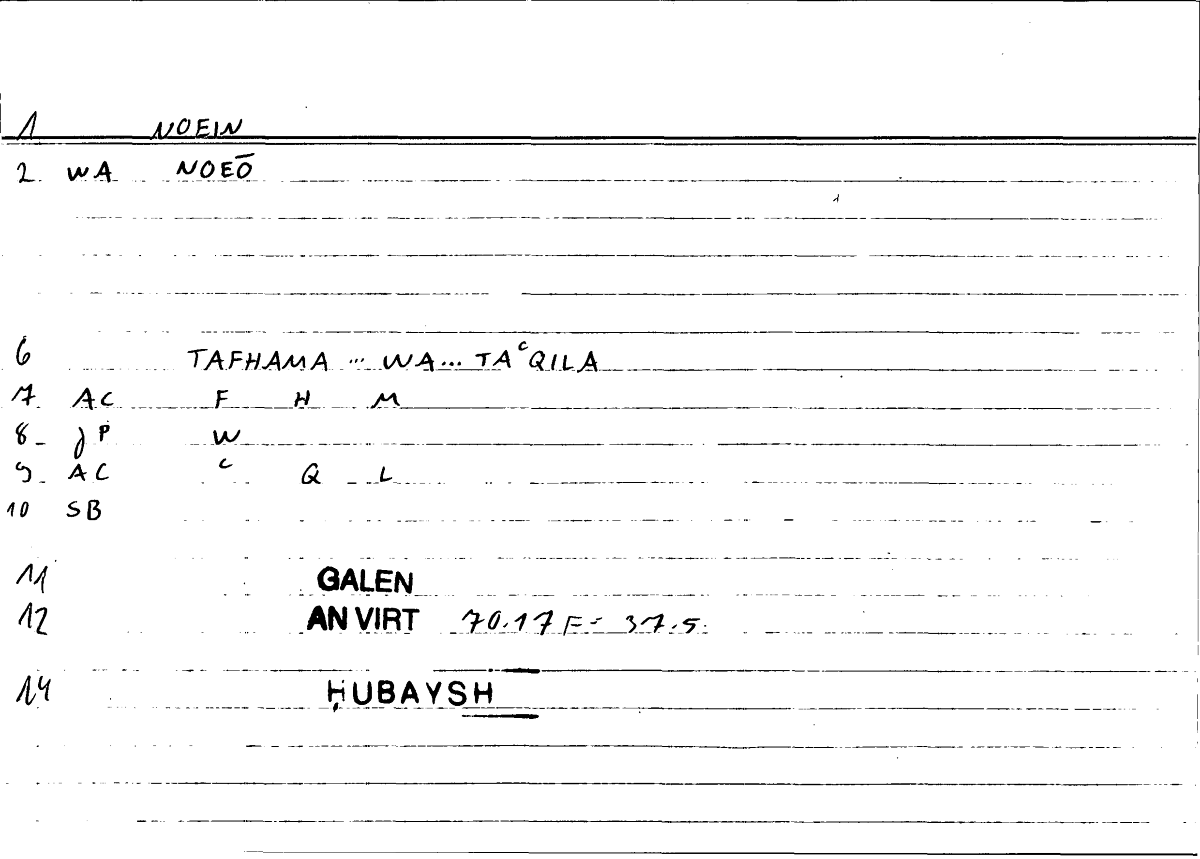 1 NOEIN
2 WA NOEŌ
6 TAFHAMA ... WA... TAᶜQILA
7 AC F H M
8 JP W
9 AC ᶜ Q L
10 SB
11 GALEN
12 AN VIRT 70.17 F = 37.5.
14 ḤUBAYSH